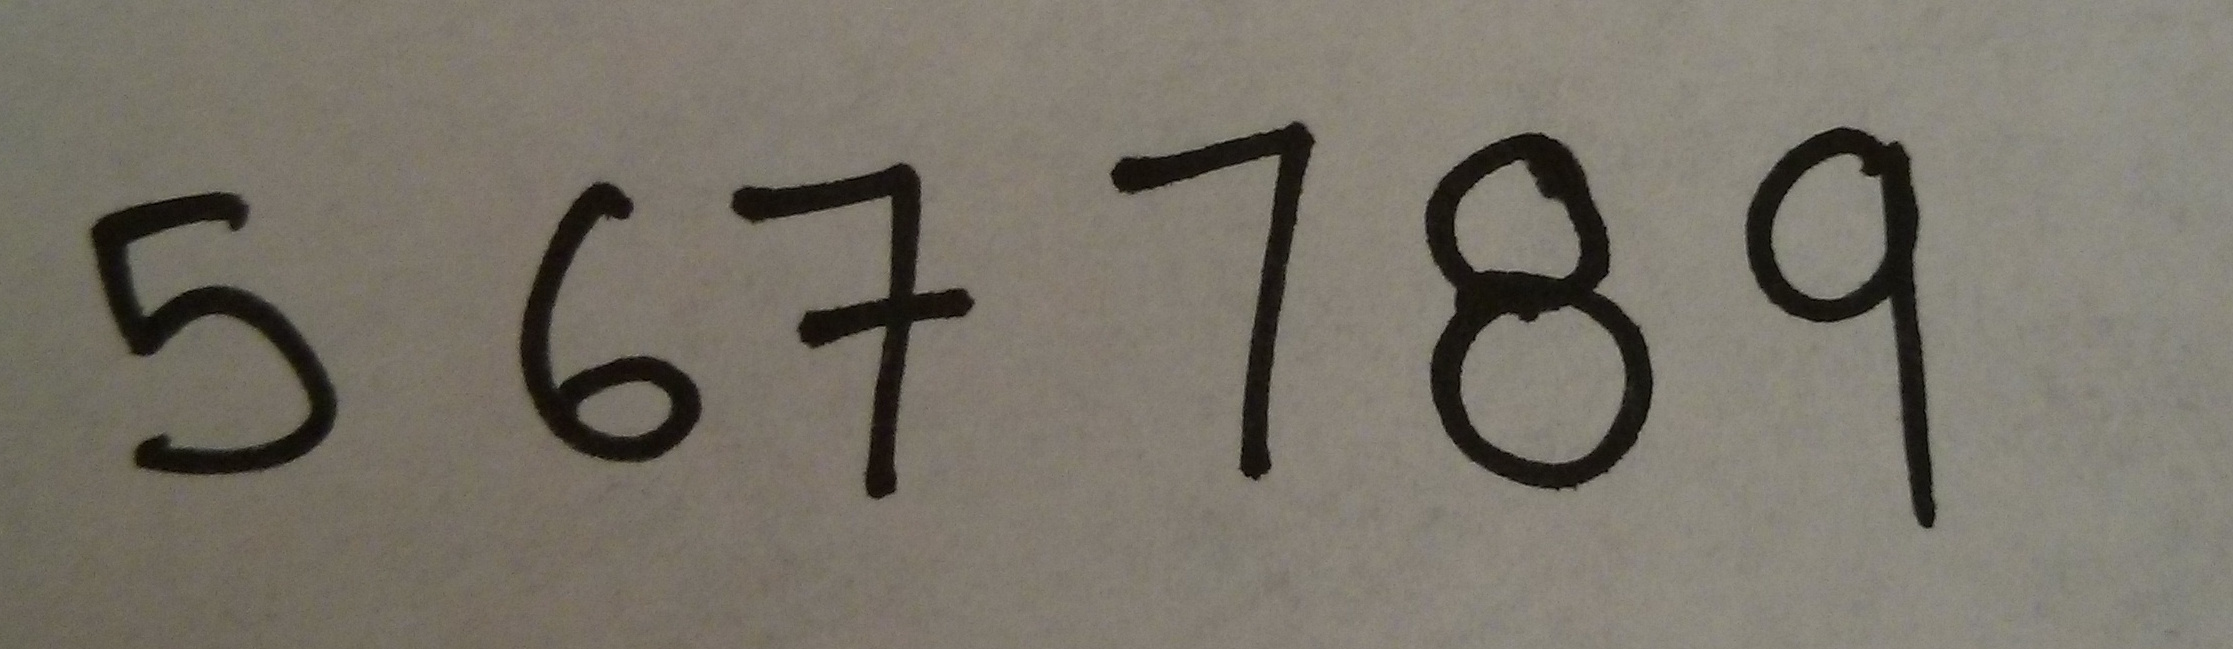 5 6 7 7 8 9